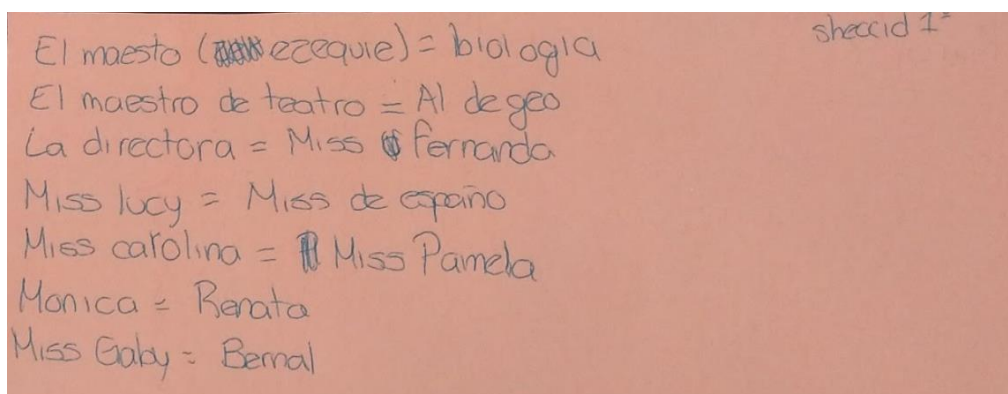 sheccid 1°
El maesto (ezequie) = biologia
El maestro de teatro = Al de geo
La directora = Miss fernanda
Miss lucy = Miss de españo
Miss carolina = Miss Pamela
Monica = Renata
Miss Gaby = Bernal